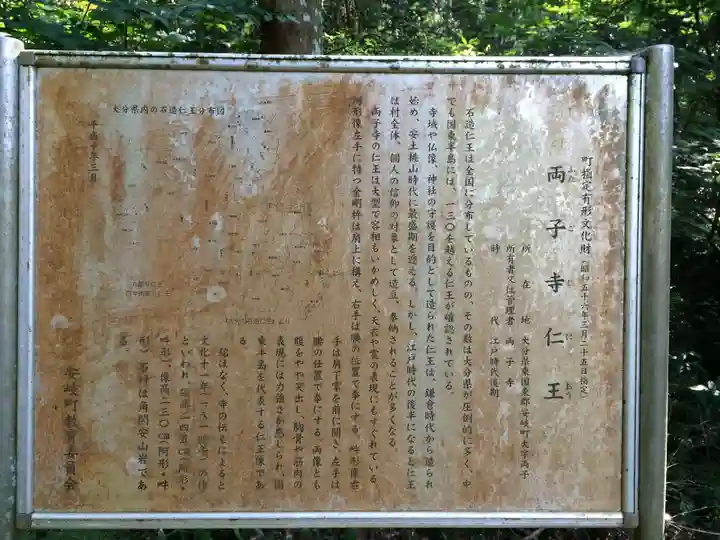 町指定有形文化財(昭和五十六年三月二十五日指定)
両子寺仁王
ふたごじにおう
所在地 大分県東国東郡安岐町大字両子
所有者又は管理者 両子寺
時代 江戸時代後期
石造仁王は全国に分布しているものの、その数は大分県が圧倒的に多く、中
でも国東半島には、一三〇を越える仁王が確認されている。
寺域や仏像、神社の守護を目的として造られた仁王は、鎌倉時代から造られ
始め、安土桃山時代に最盛期を迎える。しかし、江戸時代の後半になるとに王
は村全体、個人の信仰の対象として造立、奉納されることが多くなる。
両子寺の仁王は大型で容相もいかめしく、天衣や裳の表現にもすぐれている。
阿形像左手に持つ金剛杵は肩上に構え、右手は腰の位置で拳にする。吽形像右
手は肩下で掌を前に開き、左手は
腰の位置で拳にする。両像とも
腹をやや突出し、胸骨や筋肉の
表現には力強さが感じられ、国
東半島を代表する仁王像であ
る。
銘はなく、寺の伝えによると
文化十一年(一八一四年)の作
といわれ、総高二四五㎝(阿形・
吽形)、像高二三〇㎝(阿形・吽
形)、石材は角閃安山岩であ
る。
安岐町教育委員会
大分県内の石造仁王分布図
平成十年三月